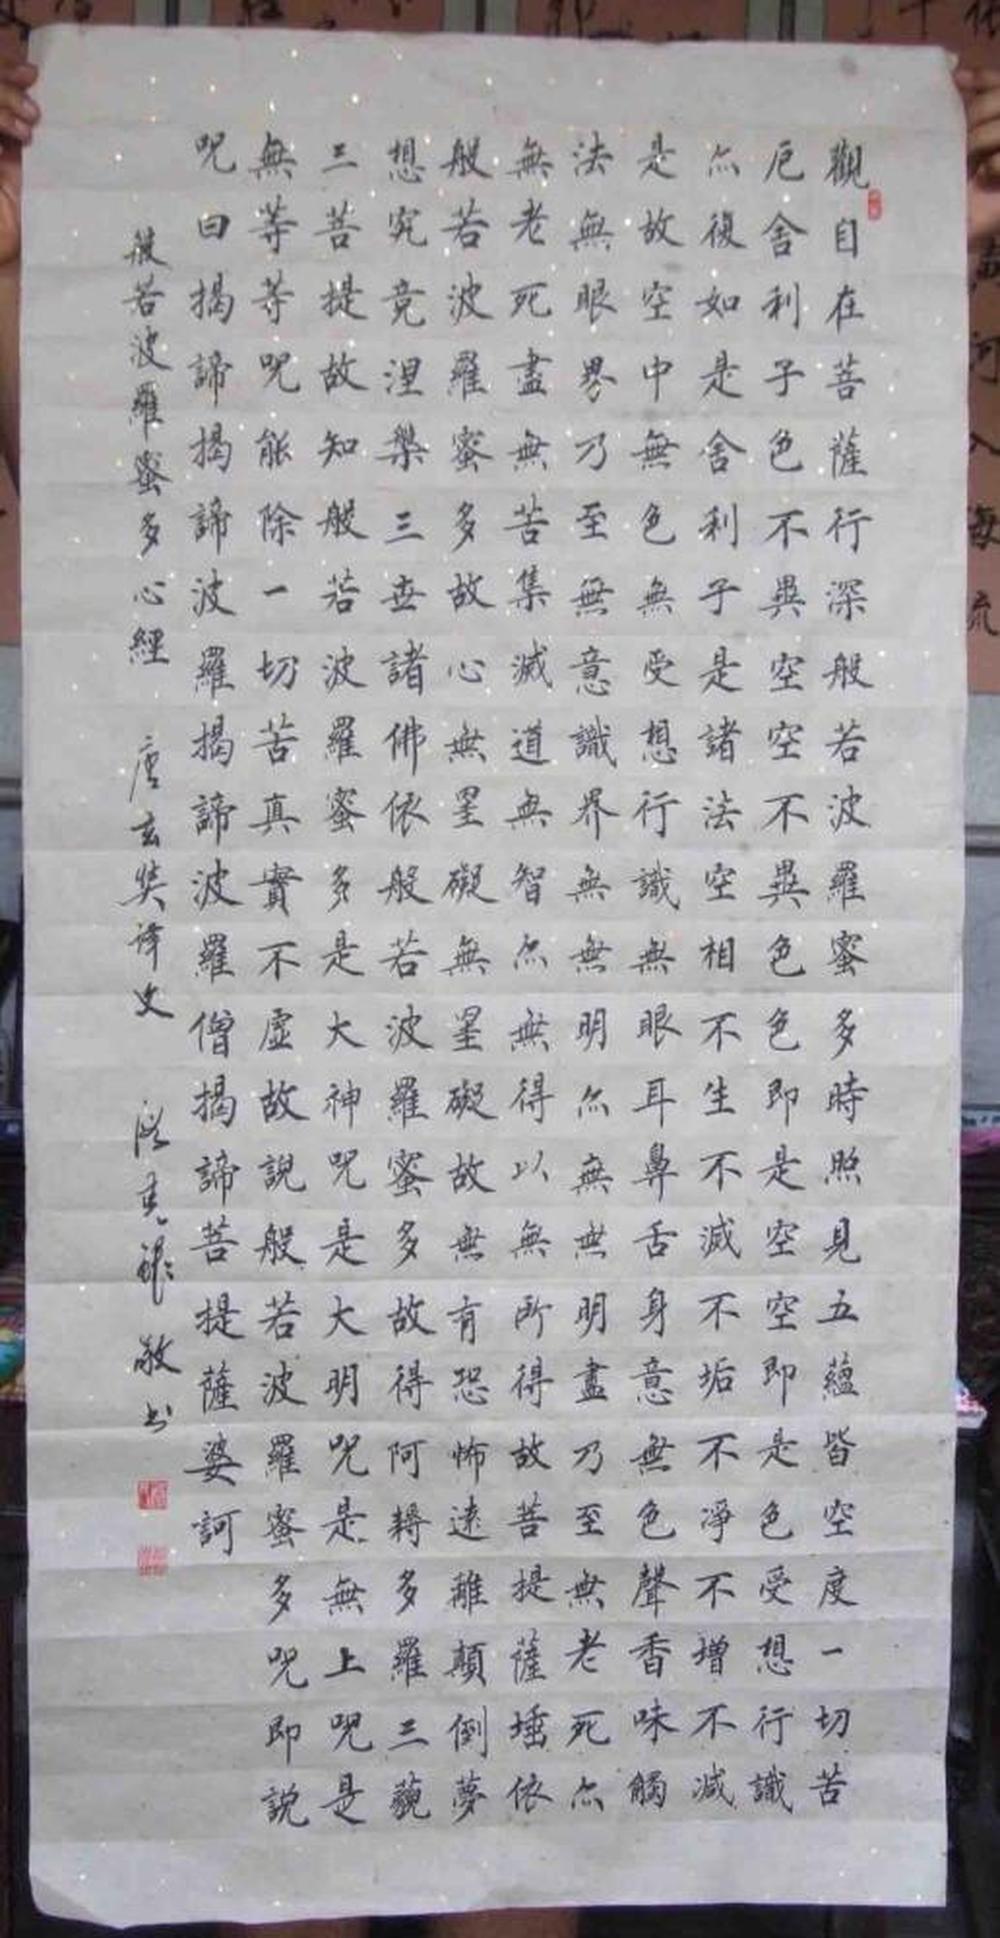 觀自在菩薩行深般若波羅蜜多時照見五蘊皆空度一切苦
厄舍利子色不異空空不異色色即是空空即是色受想行識
亦復如是舍利子是諸法空相不生不滅不垢不淨不增不減
是故空中無色無受想行識無眼耳鼻舌身意無色聲香味觸
法無眼界乃至無意識界無無明亦無無明盡乃至無老死亦
無老死盡無苦集滅道無智亦無得以無所得故菩提薩埵依
般若波羅蜜多故心無罣礙無罣礙故無有恐怖遠離顛倒夢
想究竟涅槃三世諸佛依般若波羅蜜多故得阿耨多羅三藐
三菩提故知般若波羅蜜多是大神呪是大明呪是無上呪是
無等等呪能除一切苦真實不虛故說般若波羅蜜多呪即說
呪曰揭諦揭諦波羅揭諦波羅僧揭諦菩提薩婆訶
般若波羅蜜多心經 唐玄奘译文 敬书
河入海流